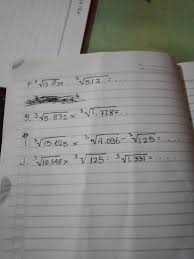 F. ³√13.824 ³√512 = ...
g. ³√5.832 × ³√1.728 = ...
i. ³√15.625 × ³√4.096 - ³√125 = ...
J. ³√10.648 × ³√125 : ³√1.331 = ...